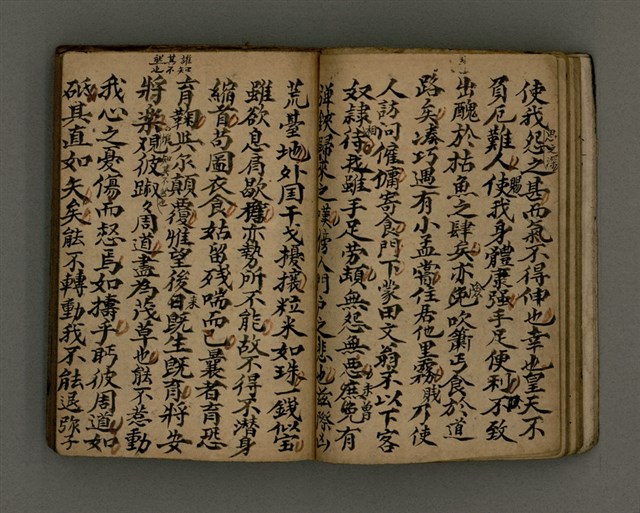 使我怨之甚而氣不得伸也幸也皇天不
負厄難人使我身體康强手足便利不致
出醜於枯魚之肆矣亦弟吹簫丐食於道
路矣湊巧遇有小孟嘗住居他里霧戲乃使
人訪問傭寄食門下蒙田文翁不以下客
奴隸待我雖手足勞頓無怨無惡庶免有
彈鋏歸來之嘆
荒臺地外国干戈擾攘粒米如珠一錢似宝
雖欲息肩歇擔亦勢所不能故不得不潛身
縮首苟圖衣食姑留殘喘而已曩者育恐
育鞠與尔顛覆惟望後日既生既育將安
將樂視彼踧々周道盡為茂草也能不惹動
我心之憂傷而惄焉如擣乎眄彼周道如
砥其直如矢矣能不轉動我不能退弥子